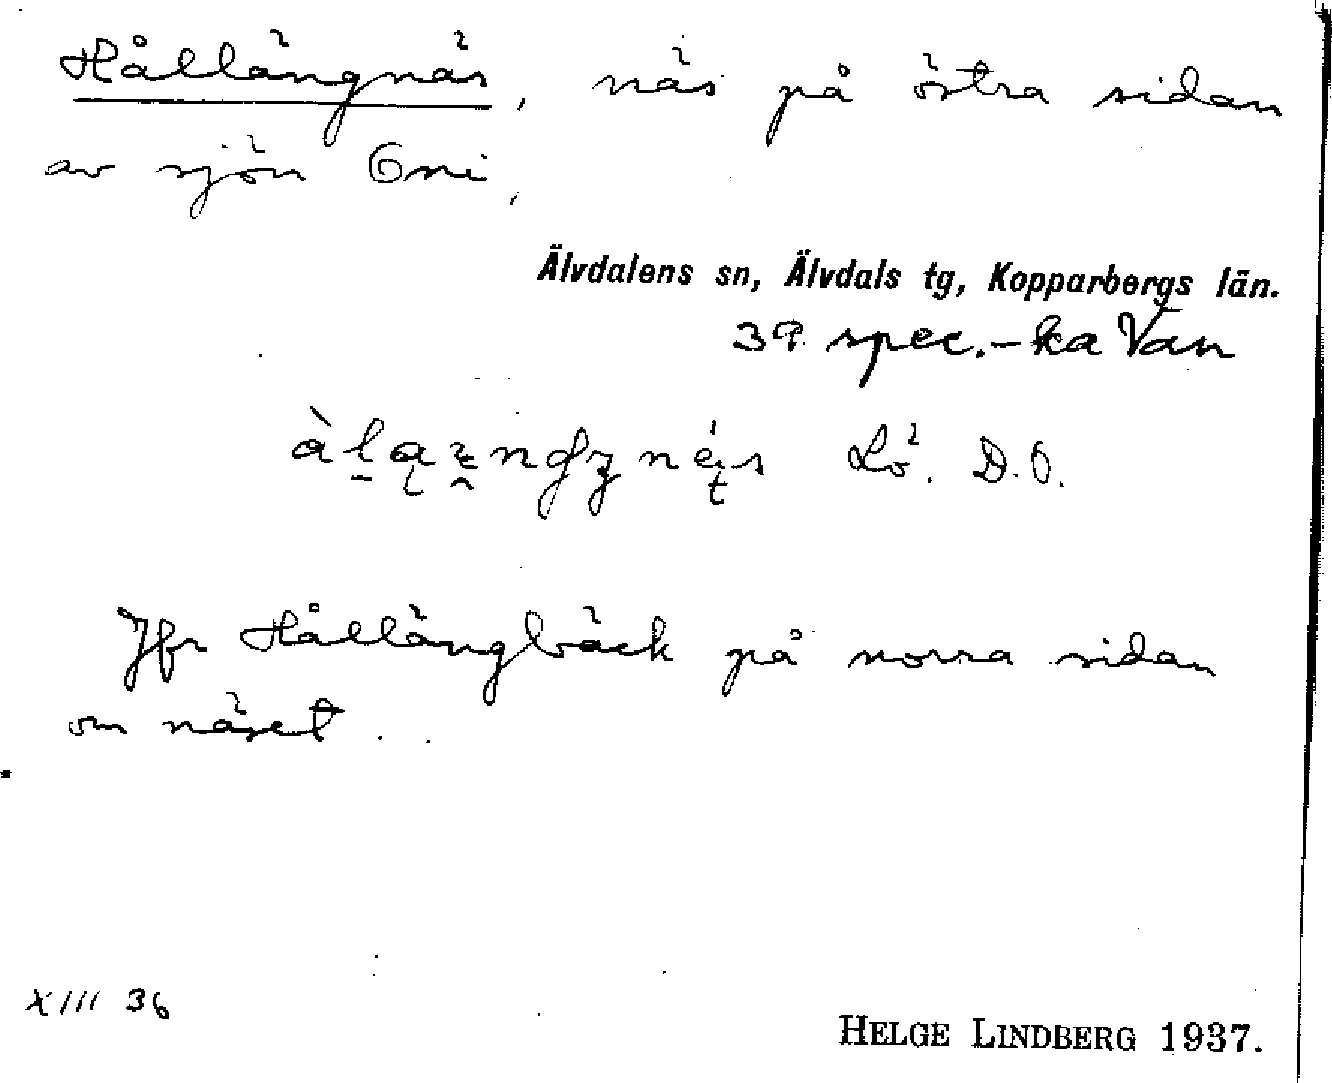 Hållängnäs, näs på östra sidan
av sjön Osni,
Älvdalens sn, Älvdals tg, Kopparbergs län.
39. spec.-ka Van
Lö. D.O.
Jfr Hållängbäck på norra sidan
om näset.
XIII 36
HELGE LINDBERG 1937.